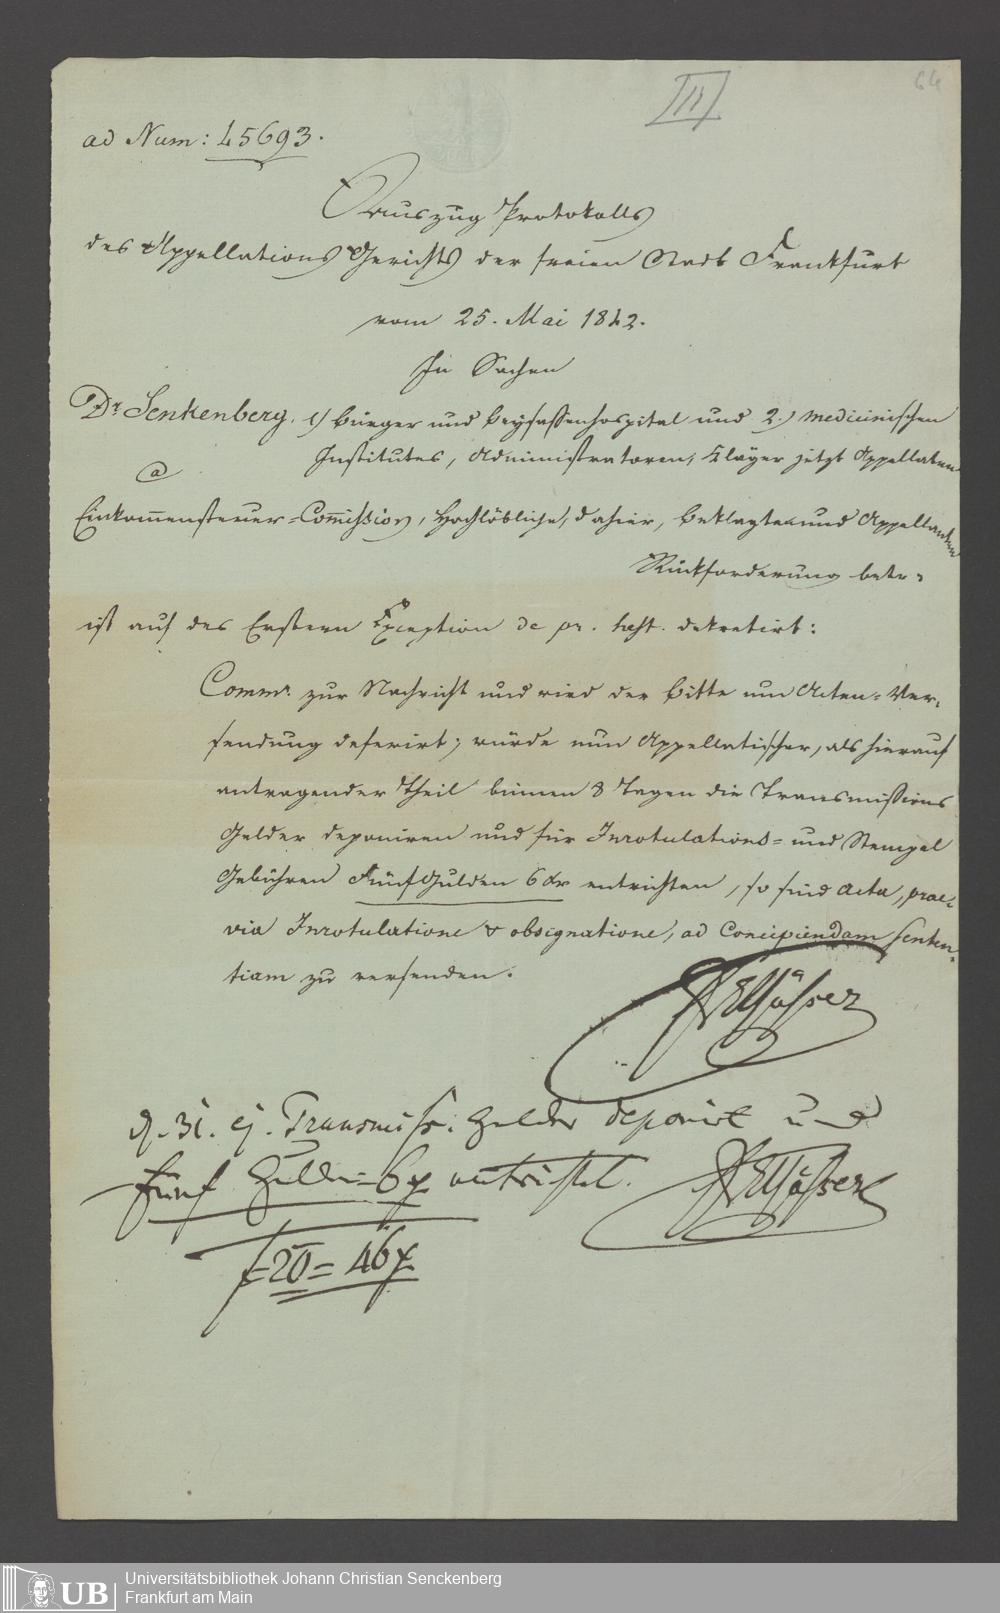 64
III
ad Num: 45693.
Auszug Protokolls
des Appellations Gerichts der freien Stadt Frankfurt
vom 25. Mai 1842.
In Sachen
Dr Senkenberg. 1) Bürger und Beysassenhospital und 2.) medicinischen
Institutes, Administratoren, Kläger jetzt Appellaten
a
Einkom̄ensteuer-Com̄ission, Hochlöbliche, dahier, Beklagten und Appellanten
Rückforderung betr.
ist auf des Erstern Exception de pr. 
dekretirt:
Commr. zur Nachricht und wird der Bitte um Acten-Ver-
sendung deferirt; würde nun Appellatischer, als hierauf
antragender Theil binnen 8 Tagen die Transmissions
Gelder deponiren und für Inrotulations- und Stempel
Gebühren Fünf Gulden 6 Xr entrichten, so sind Acta, prae-
via Inrotulatione & obsignatione, ad concipiendam senten-
tiam zu versenden.
d. 31. ej. Transmiss. Gelder deponirt und
fünf Gulden 6 x entrichtet.
f 20 = 46 x
UB
Universitätsbibliothek Johann Christian Senckenberg
Frankfurt am Main